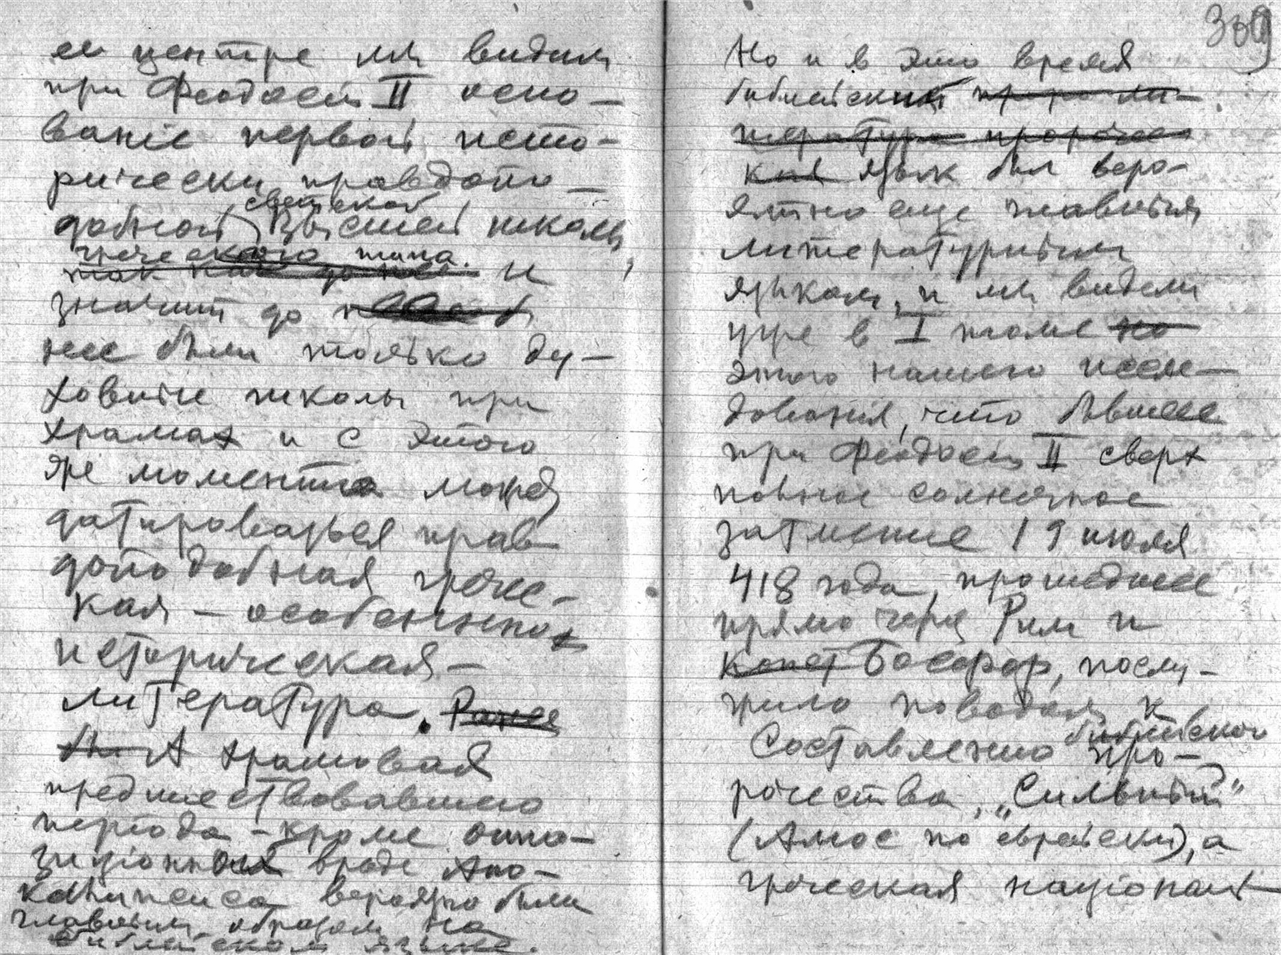 ее центре мы видим
при Феодосии II осно-
вание первой исто-
рически правдопо-
добной светской высшей школы,
греческого типа. и
так как до нее
значит до
нее были только ду-
ховные школы при
храмах и с этого
же момента может
датироваться прав
доподобная грече-
кая – особенно
историческая –
литература. Ранее
А храмовая
предшествовавшего
периода – кроме оппо-
зиционной вроде Апо-
калипсиса вероятно были
главным образом на
библейском языке.
309
Но и в это время
библейский
литература пророчес
кая язык был веро-
ятно еще главным
литературным
языком, и мы видели
уже в I томе по
этого нашего иссле-
дования, что бывшее
при Феодосии II сверх
полное солнечное
затмение 19 июля
418 года, прошедшее
прямо через Рим и
Конст Босфор, послу-
жило поводом к
Составлению библейского про-
рочества, „Сильный"
(Амос по еврейски), а
греческая национал